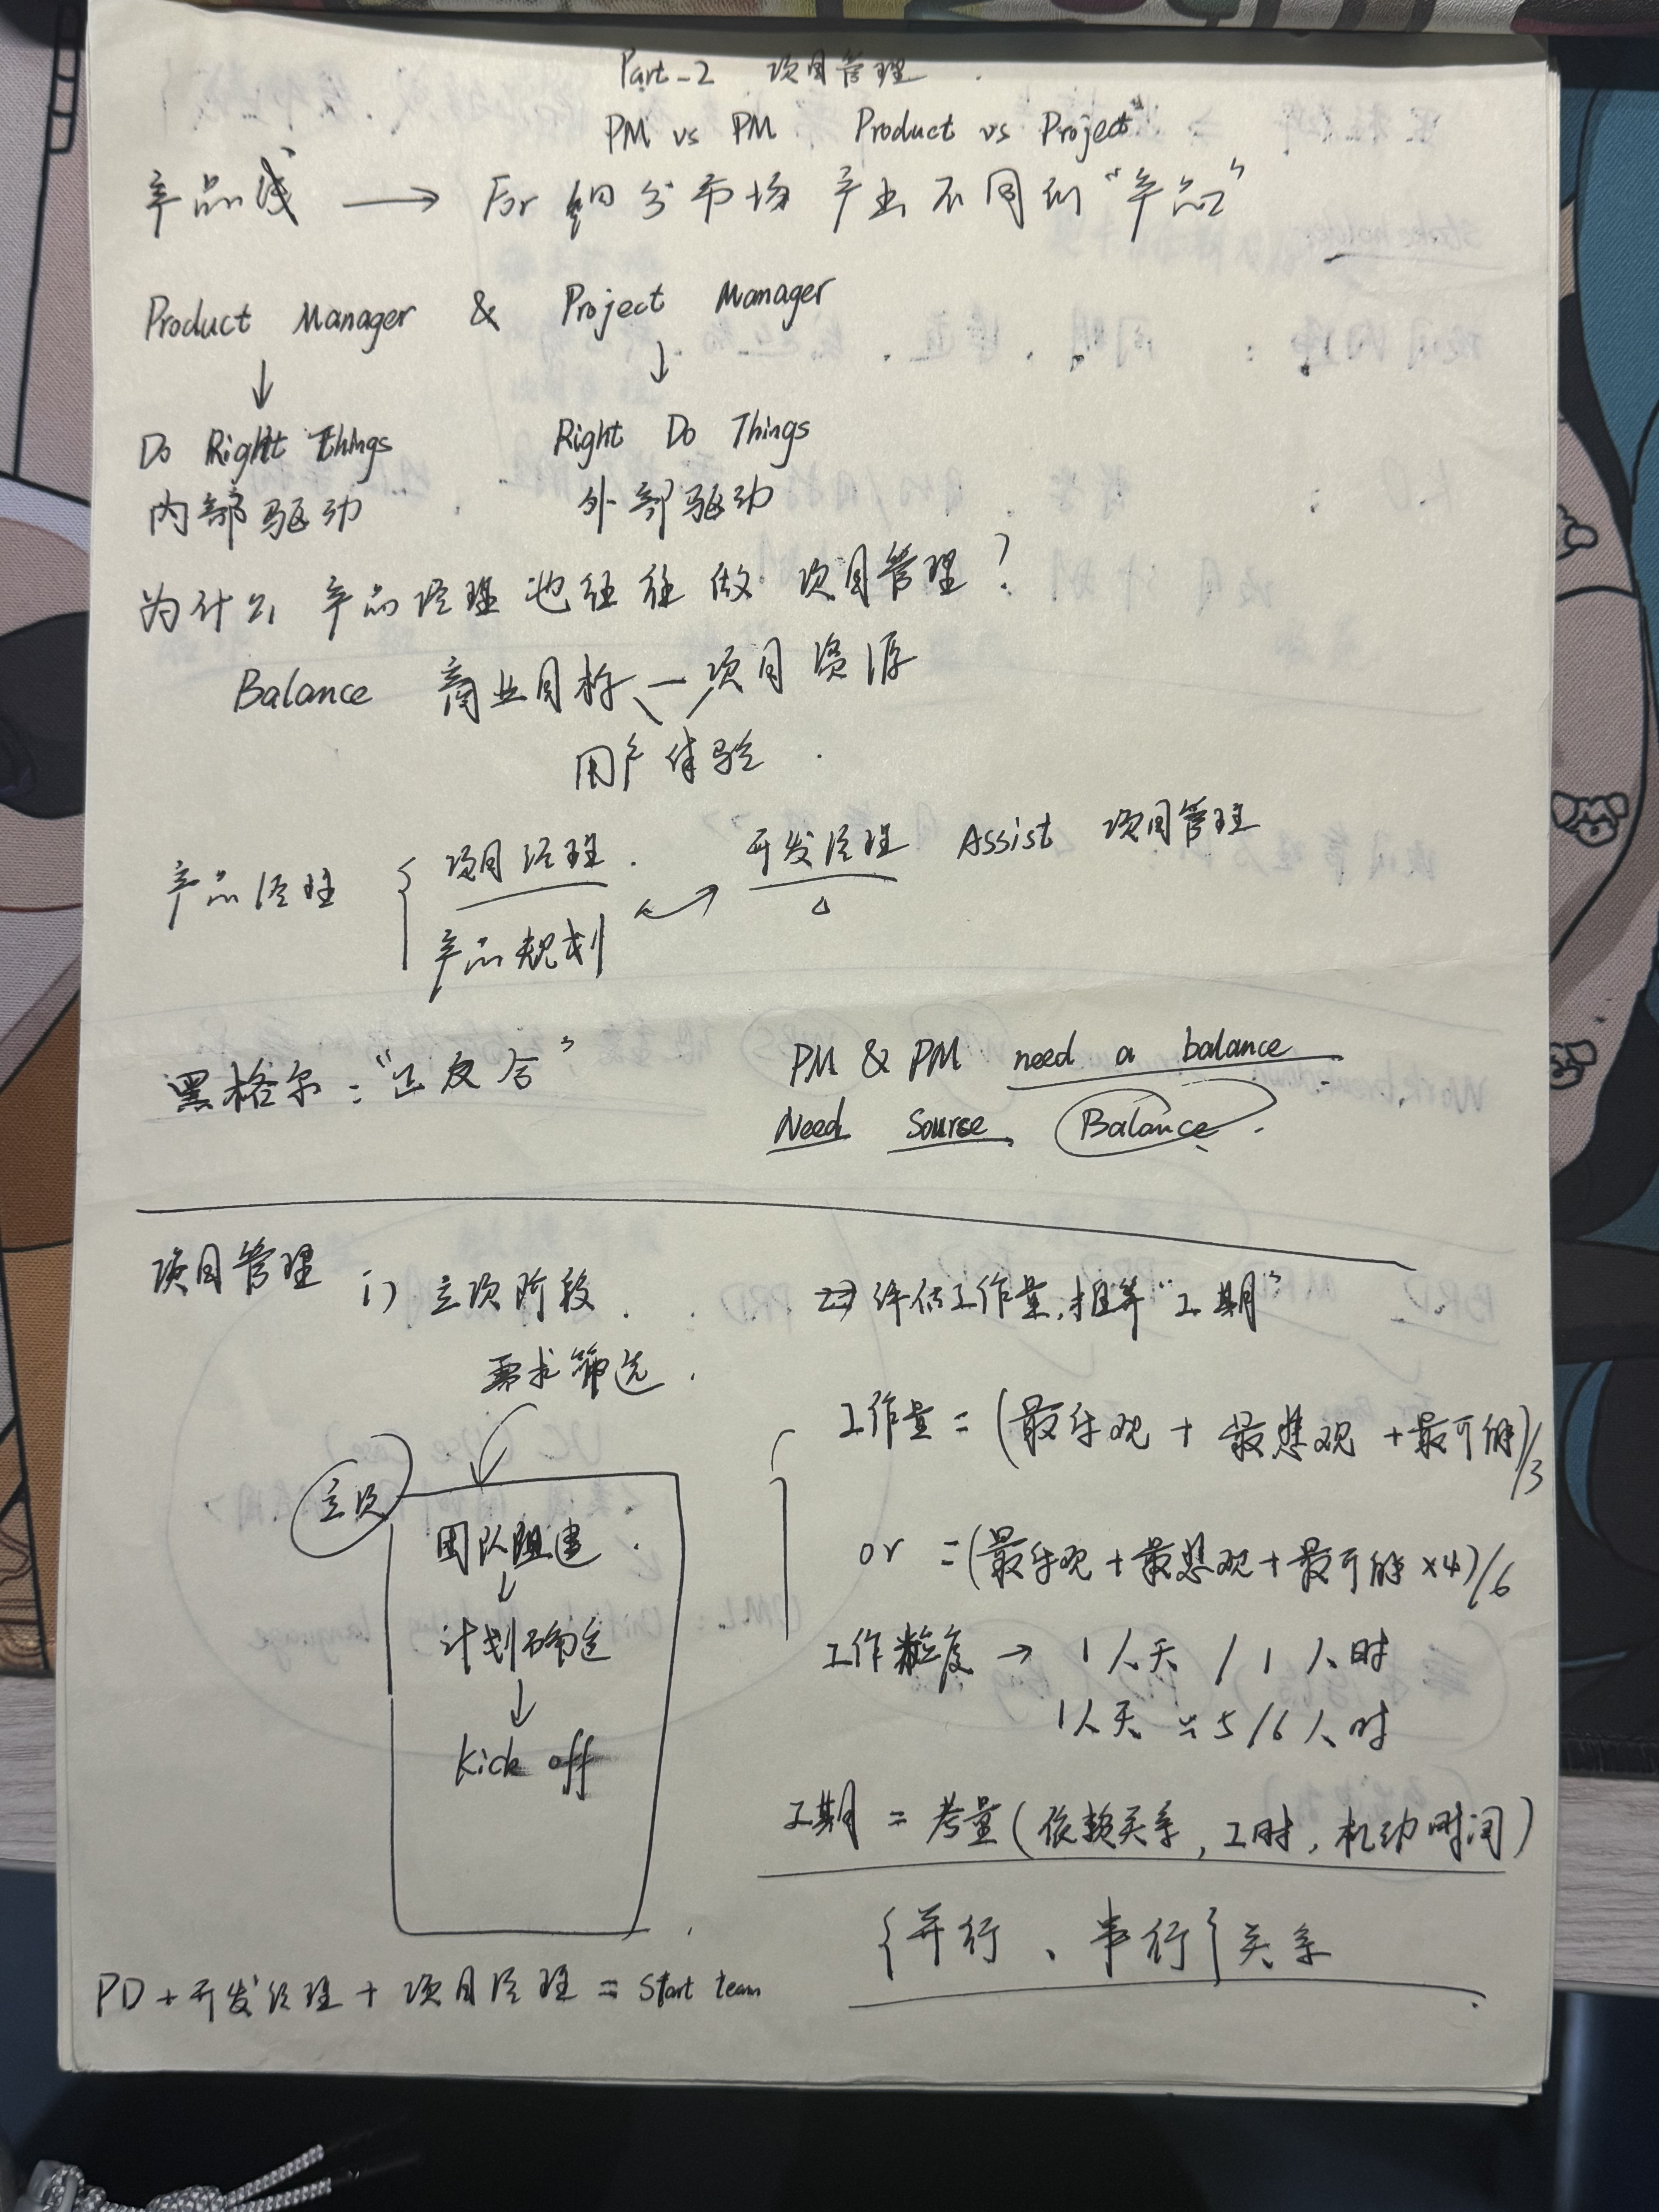 Part-2 项目管理
PM vs PM Product vs Project
产品线 → For 细分市场 产出不同的“产品”
Product Manager & Project Manager
↓ ↓
Do Right Things Right Do Things
内部驱动 外部驱动
为什么 产品经理也往往做 项目管理?
Balance 商业目标 — 项目资源
用户体验
产品经理 { 项目经理 产品规划
开发经理 Assist 项目管理
黑格尔:“正反合”
PM & PM need a balance
Need Sourse Balance
项目管理 i) 立项阶段
需求筛选
立项
团队组建
↓
计划确定
↓
Kick off
PD + 开发经理 + 项目经理 = Start team
评估工作量,推算“工期”
工作量 = (最乐观 + 最悲观 + 最可能)/3
or = (最乐观 + 最悲观 + 最可能 ×4)/6
工作粒度 → 1人天 / 1人时
1人天 ≈ 5/6人时
工期 = 考量(依赖关系, 工时, 机动时间)
{并行、串行}关系